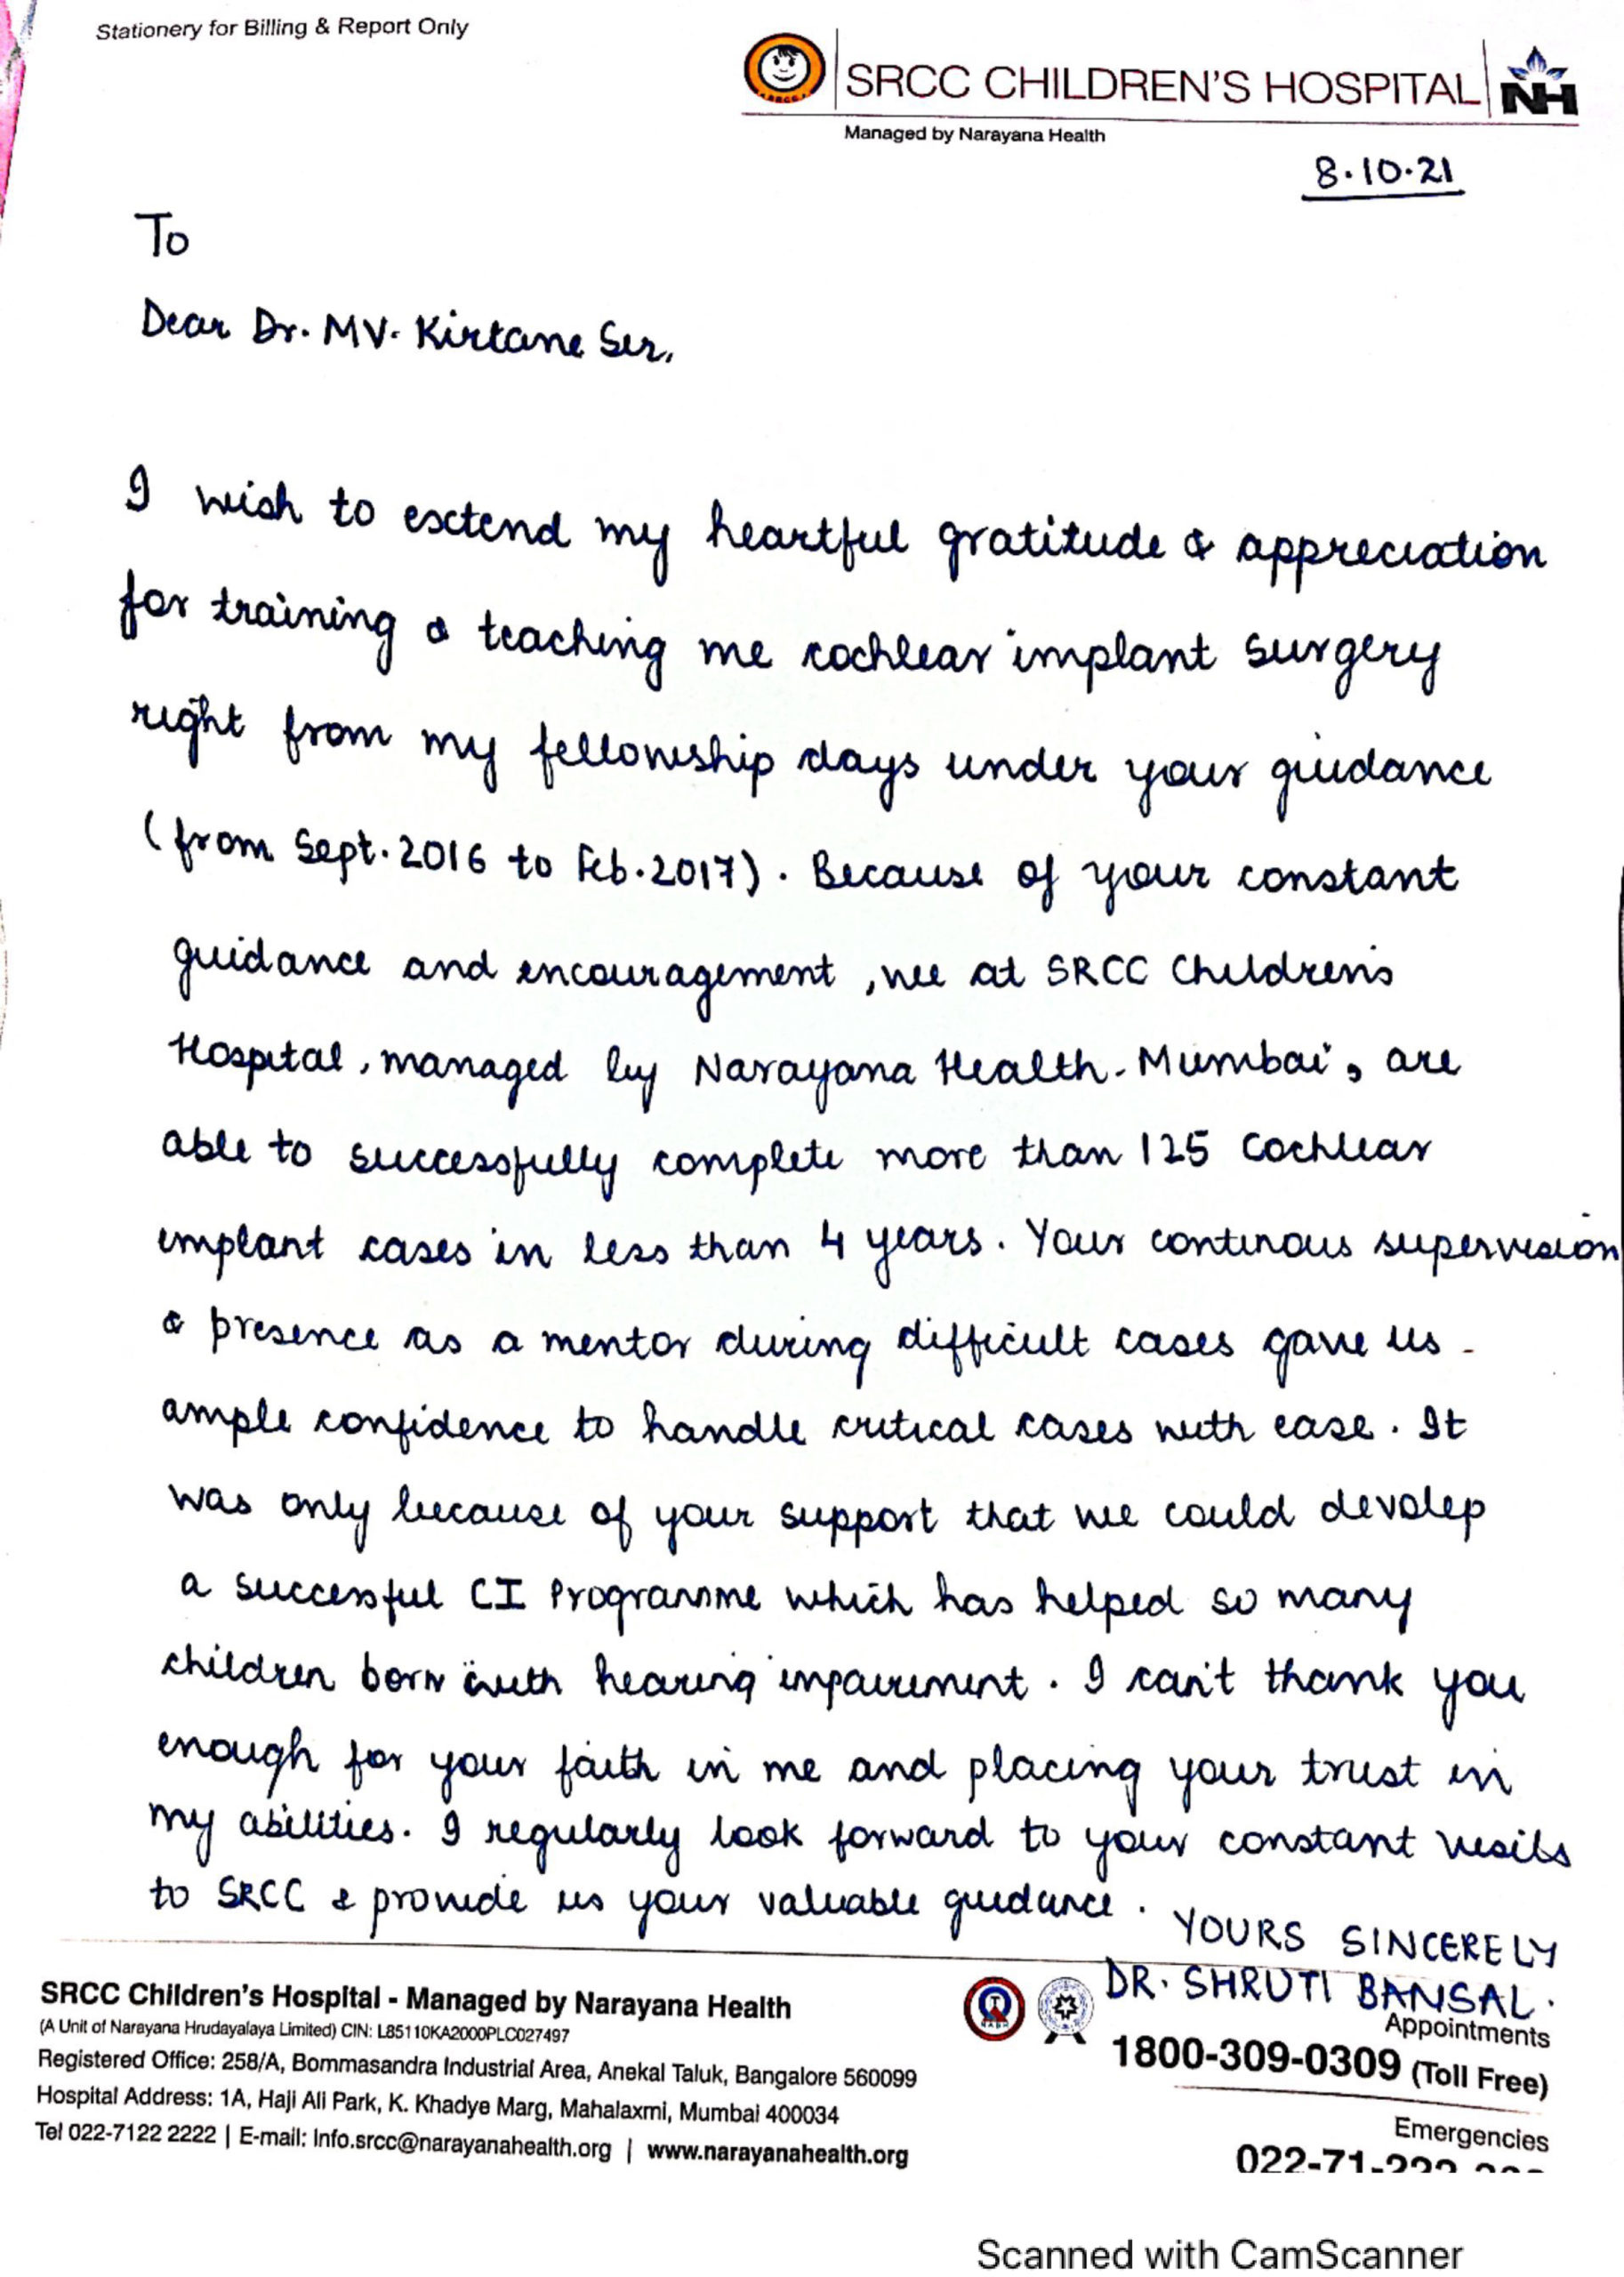 Stationery for Billing & Report Only
SRCC CHILDREN'S HOSPITAL NH
Managed by Narayana Health
8.10.21
To
Dear Dr. MV. Kirtane Sir,
I wish to extend my heartful gratitude & appreciation
for training & teaching me cochlear implant surgery
right from my fellowship days under your guidance
(from Sept. 2016 to Feb. 2017). Because of your constant
guidance and encouragement, we at SRCC Children's
Hospital, managed by Narayana Health - Mumbai, are
able to successfully complete more than 125 Cochlear
implant cases in less than 4 years. Your continous supervision
& presence as a mentor during difficult cases gave us -
ample confidence to handle critical cases with ease. It
was only because of your support that we could devolep
a successful CI Programme which has helped so many
children born with hearing impairement. I can't thank you
enough for your faith in me and placing your trust in
my abilities. I regularly look forward to your constant visits
to SRCC & provide us your valuable guidance.
YOURS SINCERELY
DR. SHRUTI BANSAL.
SRCC Children's Hospital - Managed by Narayana Health
(A Unit of Narayana Hrudayalaya Limited) CIN: L85110KA2000PLC027497
Registered Office: 258/A, Bommasandra Industrial Area, Anekal Taluk, Bangalore 560099
Hospital Address: 1A, Haji Ali Park, K. Khadye Marg, Mahalaxmi, Mumbai 400034
Tel 022-7122 2222 | E-mail: Info.srcc@narayanahealth.org | www.narayanahealth.org
Appointments
1800-309-0309 (Toll Free)
Emergencies
Scanned with CamScanner